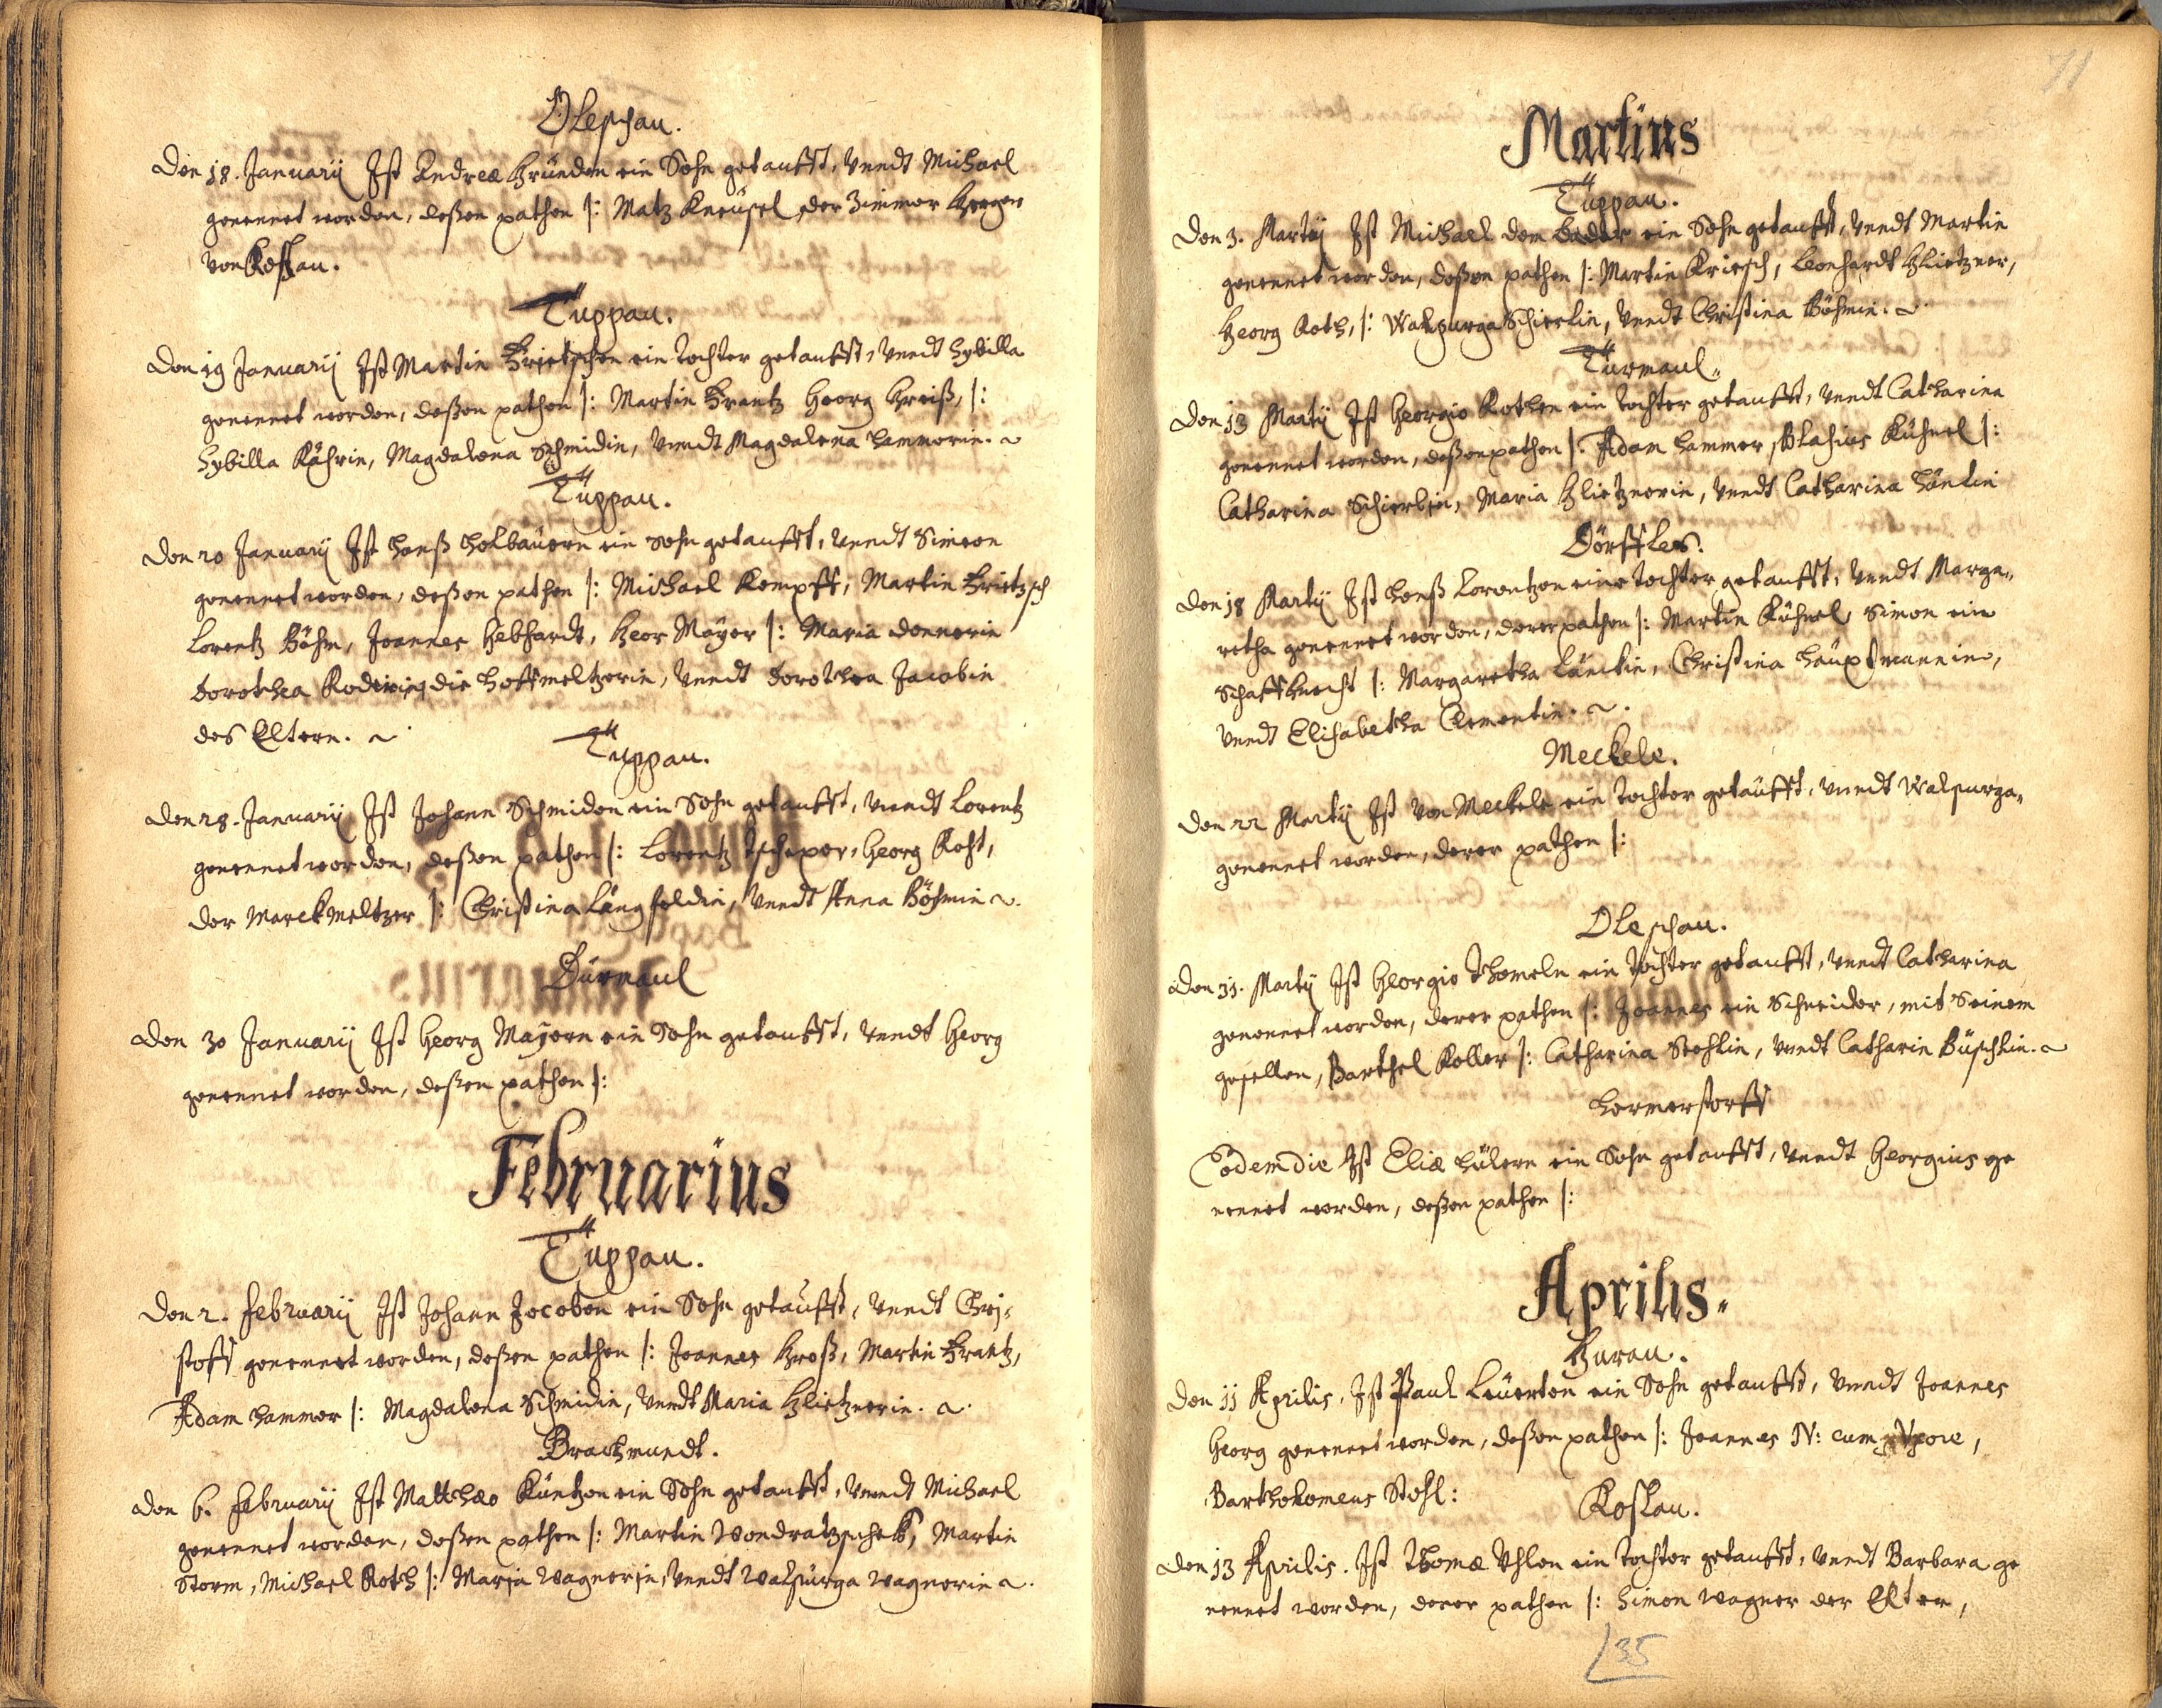 Oleschau.
Den 18. Januarij Ist Andreæ Gründen ein Sohn getaufft, Vnndt Michael
genennet worden, deßen pathen |: Matz Kneusel, der Zimmer
von Koslau.
Tuppau.
Den 19 Januarij Ist Martin Frietschen ein tochter getaufft, Vnndt Sybilla
genennet worden, deßen pathen |: Martin Frantz Georg Greiß, |:
Sybilla Käßrin, Magdalena Schmidin, Vnndt Magdalena Hammerin.
Tuppau.
Den 20 Januarij Ist Hanß Holbauern ein sohn getaufft, Vnndt Simeon
genennet worden, deßen pathen |: Michael Kempff, Martin Frietzsch
Lorentz Böhm, Joannes Gebhardt, Geor Mayer |: Maria Donnerin
Dorothea die Hoffmeltzerin, Vnndt Dorothea Jacobin
des Eltern.
Tuppau.
Den 28. Januarij Ist Johann Schmiden ein Sohn getaufft, Vnndt Lorentz
genennet worden, deßen pathen |: Lorentz Tscheper, Georg Roht,
der Marckmeltzer |: Christina Längfeldin, Vnndt Anna Böhmin.
Durmaul
Den 30 Januarij Ist Georg Mayern ein Sohn getaufft, Vnndt Georg
genennet worden, deßen pathen |:
Februarius
Tuppau.
Den 2. Februarij Ist Johann Jocoben ein Sohn getaufft, Vnndt Chri-
stoff genennet worden, deßen pathen |: Joannes Groß, Martin Frantz,
Adam Hammer |: Magdalena Schmidin, Vnndt Maria Glietznerin.
Brachmundt.
Den 6. Februarij Ist Matthæo Küntzen ein Sohn getaufft, Vnndt Michael
genennet worden, deßen pathen |: Martin Wondratzschek, Martin
Storm, Michael Roth |: Maria Wagnerin, Vnndt Walpurga Wagnerin.
71
Martius
Tuppau.
Den 3. Martij Ist Michael dem Bader ein Sohn getaufft, Vnndt Martin
genennet worden, deßen pathen |: Martin Kriesch, Leonhardt Glietzner,
Georg Roth, |: Walpurga Schierlin, Vnndt Christina Böhmin.
Turmaul.
Den 13 Martij Ist Georgio Rothen ein tochter getaufft, Vnndt Catharina
genennet worden, deßen pathen |: Adam Hammer, Blasius Kühnel |:
Catharina Schierlin, Maria Glietznerin, Vnndt Catharina Häntin
Dörffles.
Den 18 Martij Ist Hanß Lorentzen eine tochter getaufft, Vnndt Marga„
retha genennet worden, derer pathen |: Martin Kühnel, Simon ein
Schaffknecht |: Margaretha Länckin, Christina Hauptmannin,
Vnndt Elisabetha Clementin.
Meckele.
Den 22 Martij Ist von Meckele ein tochter getaufft, Vnndt Walpurga„
genennet worden, derer pathen |:
Oleschau.
Den 31. Martij Ist Georgio Thomeln ein tochter getaufft, Vnndt Catharina
genennet worden, derer pathen |: Joannes ein Schneider, mit Seinem
gesellen, Barthel Koller |: Catharina Stehlin, Vnndt Catharin Büschlin.
Hermerstorff
Eodem die Ist Eliæ Hülern ein Sohn getaufft, Vnndt Georgius ge
nennet worden, deßen pathen |:
Aprilis.
Gurau.
Den 11 Aprilis. Ist Paul Leüerten ein Sohn getaufft, Vnndt Joannes
Georg genennet worden, deßen pathen |: Joannes N: cum Vxore,
Bartholomeus Stohl:
Koslau.
Den 13 Aprilis. Ist Thomæ Uhlen ein tochter getaufft, Vnndt Barbara ge
nennet worden, derer pathen |: Simon Wagner der Elter,
35